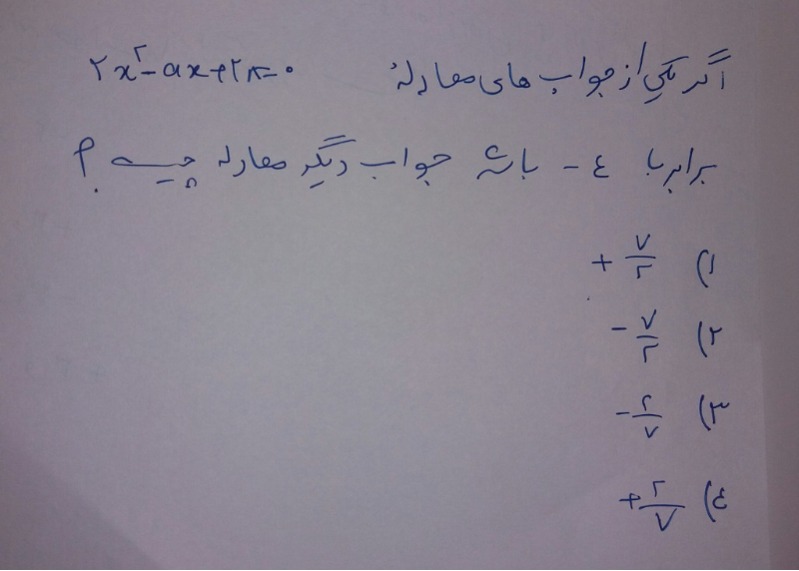 اگر یکی از جواب های معادلهٔ ۲x²-ax+۲۸=۰
برابر با ٤- باشد جواب دیگر معادله چیست ؟
۱) +۷/۲
۲) -۷/۲
۳) -۲/۷
٤) +۲/۷